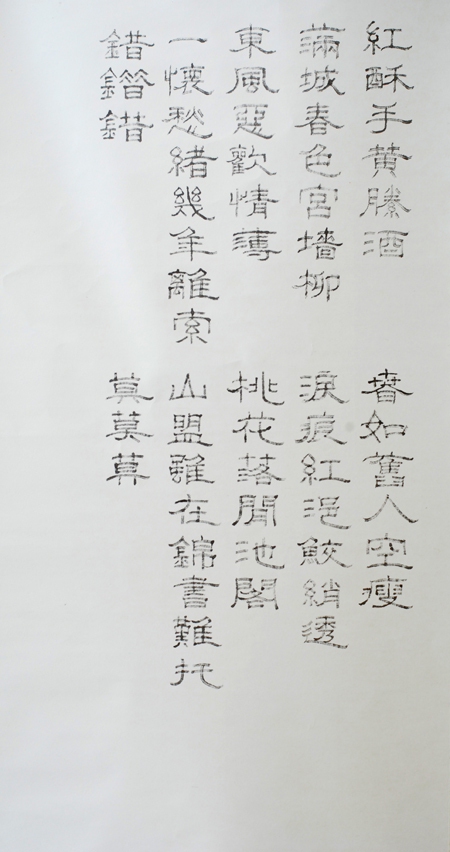 紅酥手黄縢酒
滿城春色宮墻柳
東風惡歡情薄
一懷愁緒幾年離索
錯錯錯
春如舊人空瘦
淚痕紅浥鮫綃透
桃花落閒池閣
山盟雖在錦書難托
莫莫莫